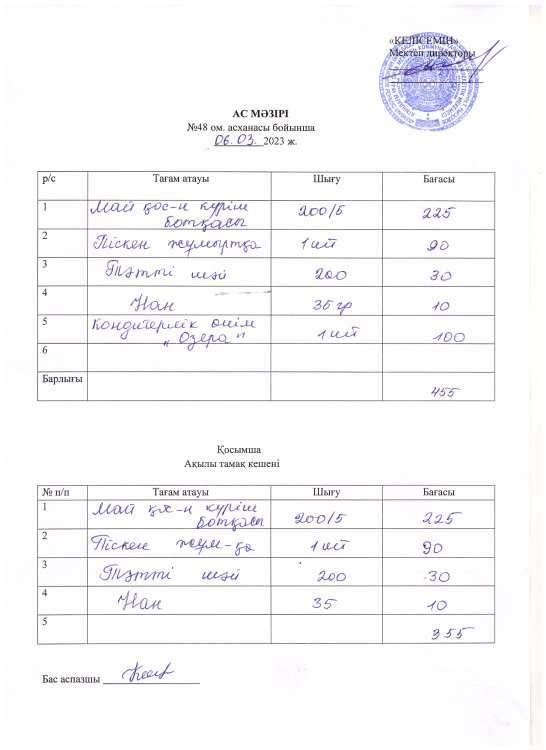 «КЕЛІСЕМІН»
Мектеп директоры
АС МӘЗІРІ
№48 ом. асханасы бойынша
06.03. 2023 ж.
р/с Тағам атауы Шығу Бағасы
1 Май қос-н күріш ботқасы 200/5 225
2 Піскен жұмыртқа 1 шт 90
3 Тәтті шәй 200 30
4 Нан 35 гр 10
5 Кондитерлік өнім "Озера" 1 шт 100
6
Барлығы 455
Қосымша
Ақылы тамақ кешені
№ п/п Тағам атауы Шығу Бағасы
1 Май қос-н күріш ботқасы 200/5 225
2 Піскен жұм-қа 1 шт 90
3 Тәтті шәй 200 30
4 Нан 35 10
5 355
Бас аспазшы